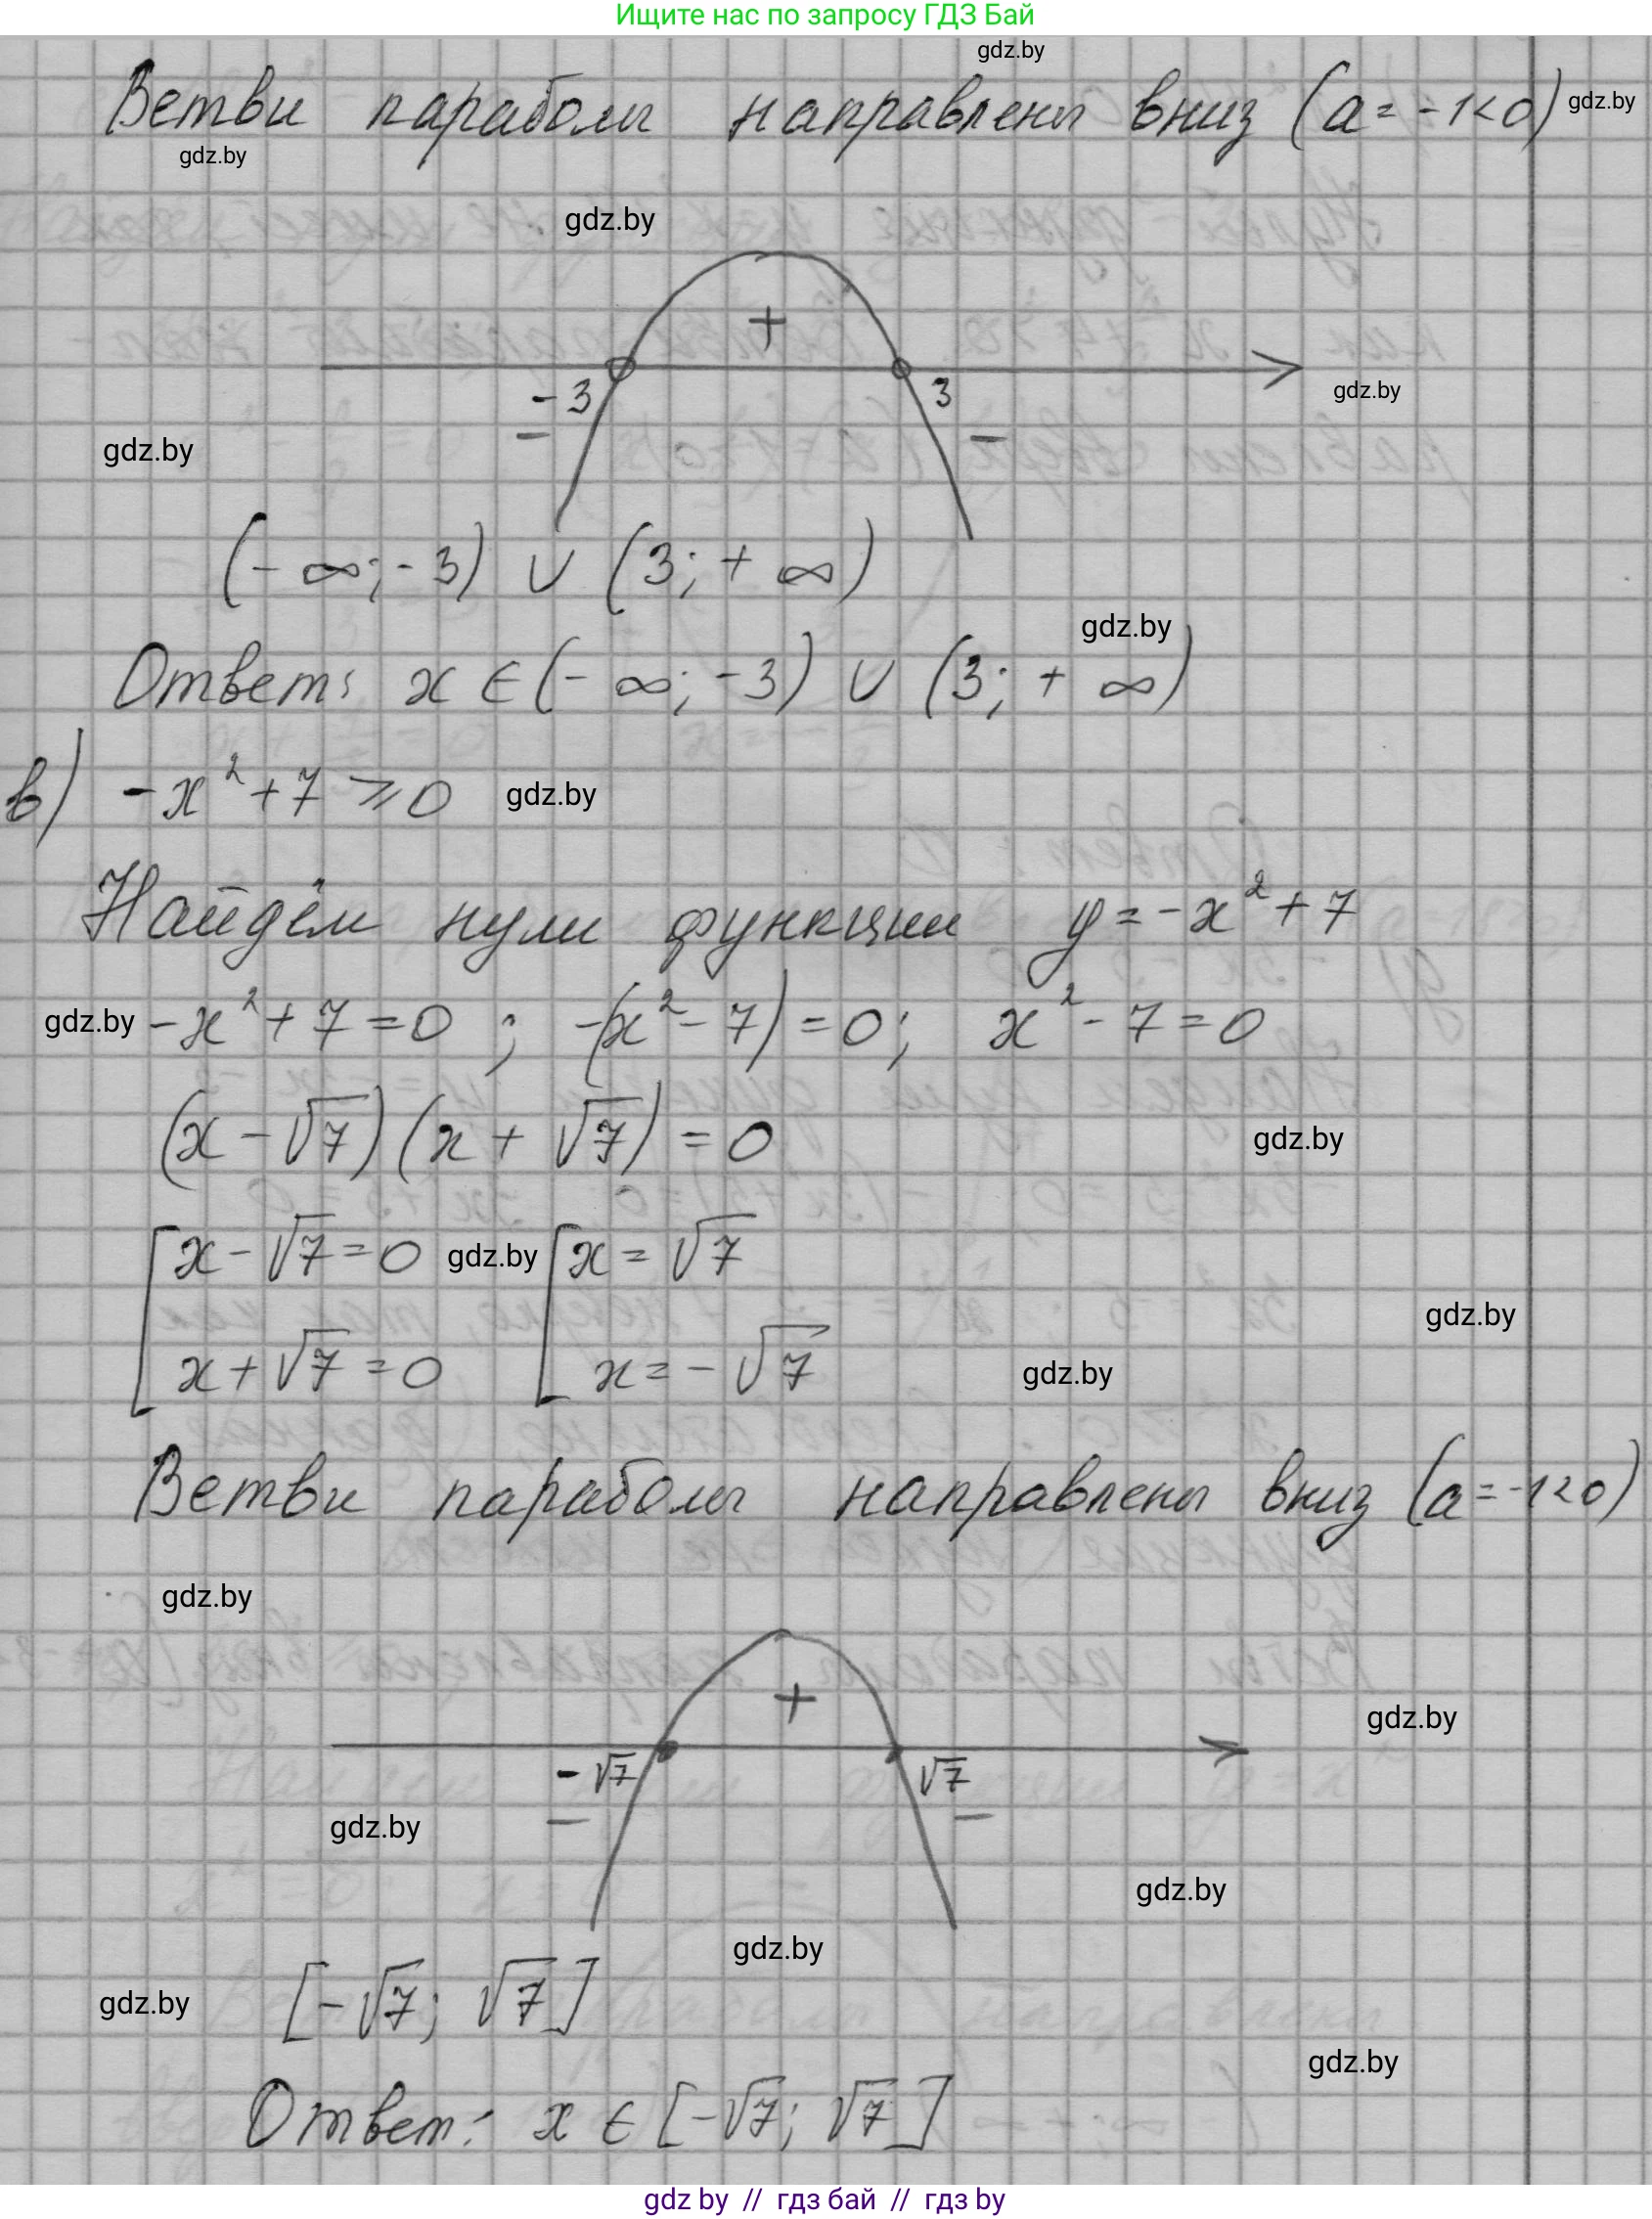 Ищите нас по запросу ГДЗ Бай
gdz.by
Ветви параболы направлены вниз (a = -1 < 0) gdz.by
gdz.by
gdz.by
+
-3 3
gdz.by
- -
gdz.by
(-∞; -3) ∪ (3; +∞)
gdz.by
Ответ: x ∈ (-∞; -3) ∪ (3; +∞)
в) -x² + 7 ⩾ 0 gdz.by
Найдём нули функции y = -x² + 7
gdz.by -x² + 7 = 0 ; -(x² - 7) = 0; x² - 7 = 0
(x - √7) (x + √7) = 0 gdz.by
[ x - √7 = 0 gdz.by [ x = √7
gdz.by
x + √7 = 0 x = -√7 gdz.by
Ветви параболы направлены вниз (a = -1 < 0)
gdz.by
+
gdz.by
-√7 √7
- -
gdz.by
gdz.by
gdz.by
gdz.by [-√7; √7]
gdz.by
Ответ: x ∈ [-√7; √7]
gdz by // гдз бай // гдз by